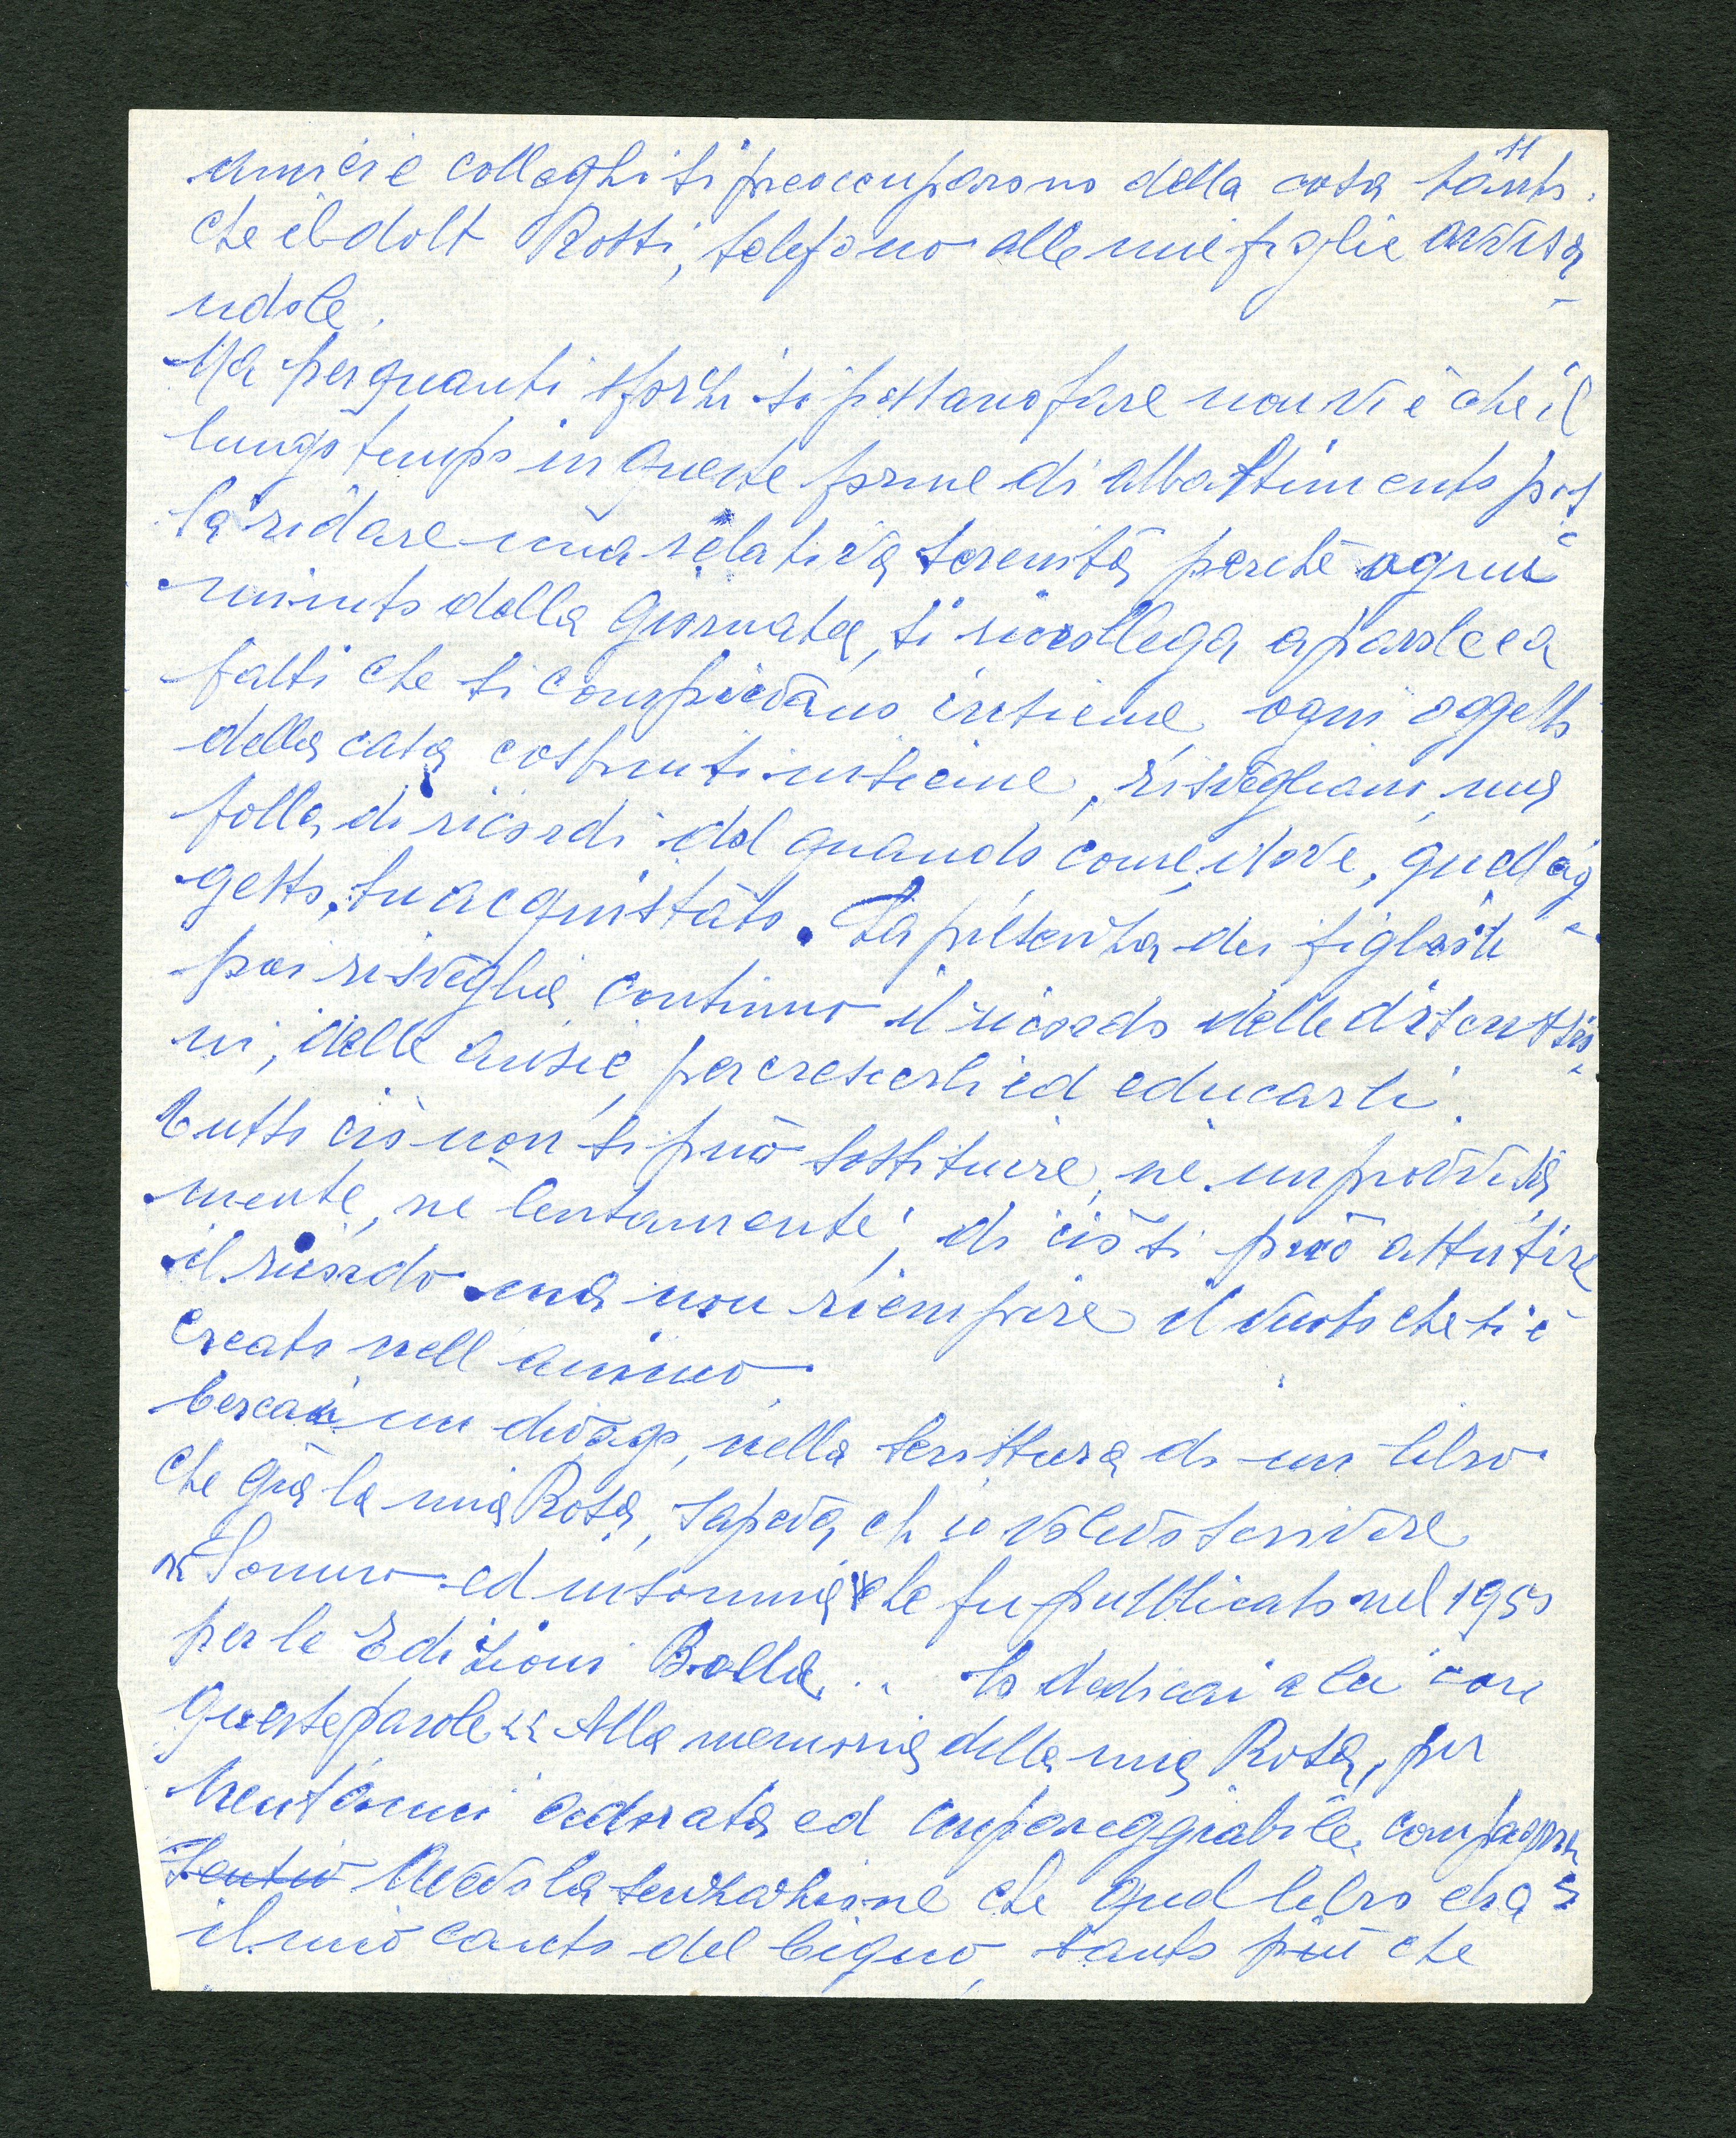 11
amici e colleghi si preoccuparono della cosa tanto.
che il dott Rossi, telefono alle mie figlie avvisa
ndole.
Ma per quanti sforzi si possano fare non vi è che il
lungo tempo in queste forme di abbattimento pos
sa ridare una relativa serenità, perchè ogni
minuto della giornata, si ricollega a parole e a
fatti che si compievano insieme, ogni oggetto
della casa costruiti insieme, risvegliano, una
folla di ricordi del quando come, e dove, quell'og
getto, fu acquistato. La presenza dei figli
poi risveglia continuo il ricordo delle discussio
ni, delle ansie, per crescerli ed educarli.
Tutto ciò non si può sostituire, nè improvvisa
mente, nè lentamente, di ciò si può attutire
il ricordo ma non riempire il vuoto che si è
creato nell animo.
Cercai un divago, nella scrittura di un libro
che già la mia Rosa, sapeva ch io volevo scrivere
" Sonno ed insonnia che fu pubblicato nel 1950
per le Edizioni Balla.. lo dedicai a lei con
queste parole << Alla memoria della mia Rosa, per
trent'anni adorata ed impareggiabile compagna
Sentivo Avevo la sensazione che quel libro era >>
il mio canto del Cigno, tanto più che